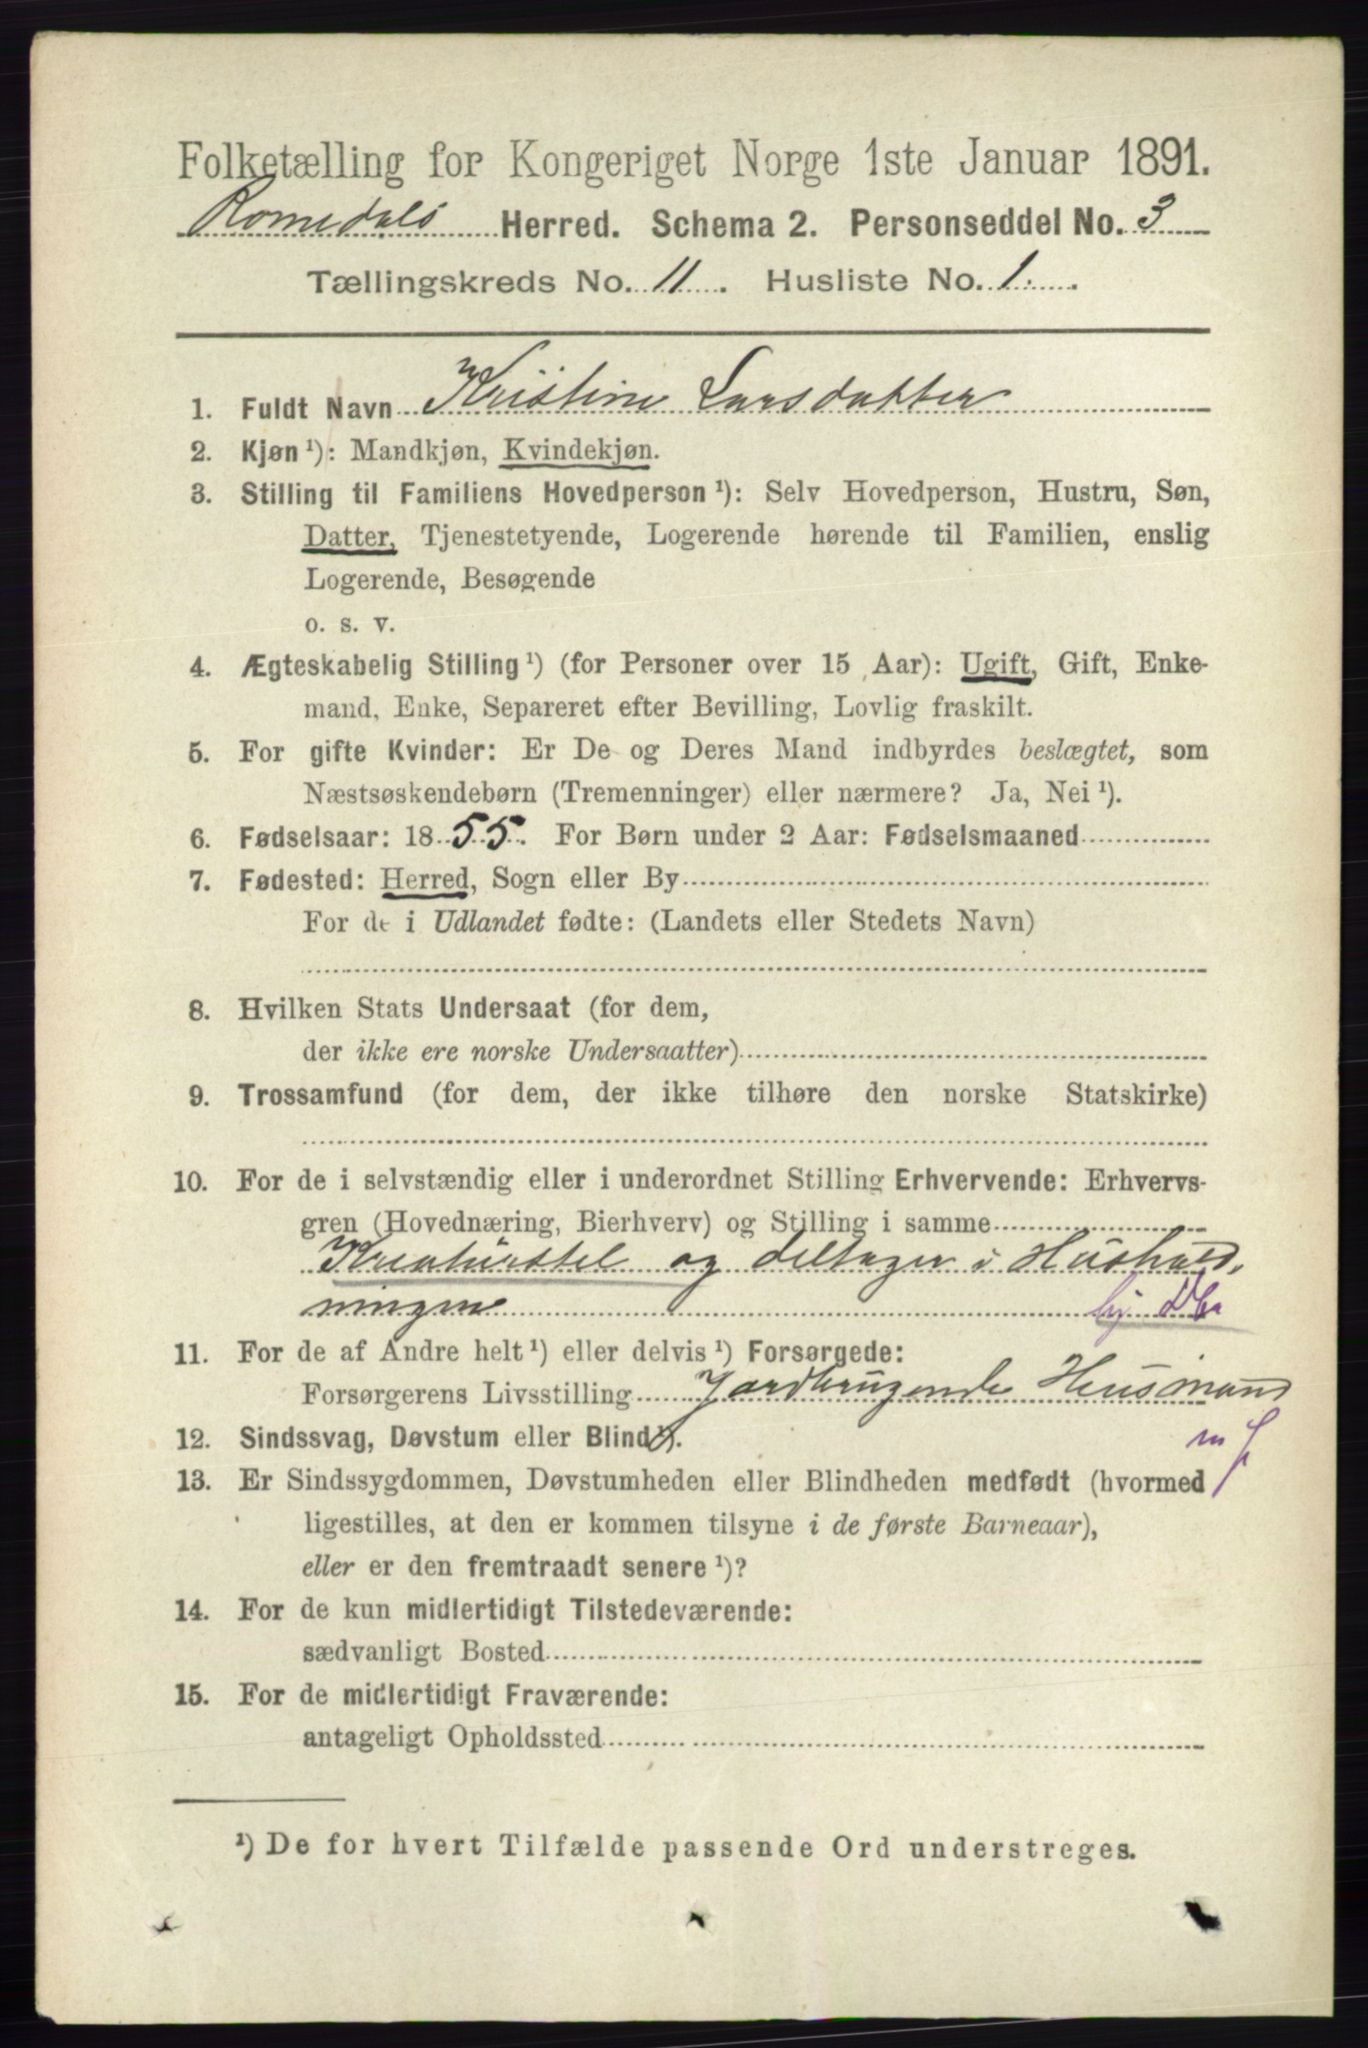 Folketælling for Kongeriget Norge 1ste Januar 1891.
Romedals Herred. Schema 2. Personseddel No. 3
Tællingskreds No. 11. Husliste No. 1.
1. Fuldt Navn Kristine Larsdatter
2. Kjøn ¹): Mandkjøn, Kvindekjøn.
3. Stilling til Familiens Hovedperson ¹): Selv Hovedperson, Hustru, Søn,
Datter, Tjenestetyende, Logerende hørende til Familien, enslig
Logerende, Besøgende
o. s. v.
4. Ægteskabelig Stilling ¹) (for Personer over 15 Aar): Ugift, Gift, Enke-
mand, Enke, Separeret efter Bevilling, Lovlig fraskilt.
5. For gifte Kvinder: Er De og Deres Mand indbyrdes beslægtet, som
Næstsøskendebørn (Tremenninger) eller nærmere? Ja, Nei ¹).
6. Fødselsaar: 1855. For Børn under 2 Aar: Fødselsmaaned
7. Fødested: Herred, Sogn eller By
For de i Udlandet fødte: (Landets eller Stedets Navn)
8. Hvilken Stats Undersaat (for dem,
der ikke ere norske Undersaatter)
9. Trossamfund (for dem, der ikke tilhøre den norske Statskirke)
10. For de i selvstændig eller i underordnet Stilling Erhvervende: Erhvervs-
gren (Hovednæring, Bierhverv) og Stilling i samme
Kreaturstel og deltager i Hushold-
ningen
11. For de af Andre helt ¹) eller delvis ¹) Forsørgede:
Forsørgerens Livsstilling Jordbrugende Husmand
12. Sindssvag, Døvstum eller Blind ¹).
m J
13. Er Sindssygdommen, Døvstumheden eller Blindheden medfødt (hvormed
ligestilles, at den er kommen tilsyne i de første Barneaar),
eller er den fremtraadt senere ¹)?
14. For de kun midlertidigt Tilstedeværende:
sædvanligt Bosted
15. For de midlertidigt Fraværende:
antageligt Opholdssted
¹) De for hvert Tilfælde passende Ord understreges.